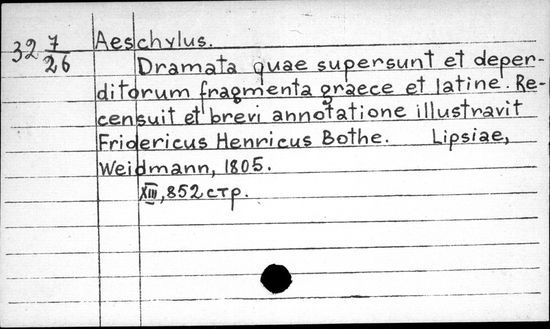 32 7/26
Aeschylus.
Dramata quae supersunt et deper-
ditorum fragmenta graece et latine. Re-
censuit et brevi annotatione illustravit
Fridericus Henricus Bothe. Lipsiae,
Weidmann, 1805.
XIII, 852 стр.